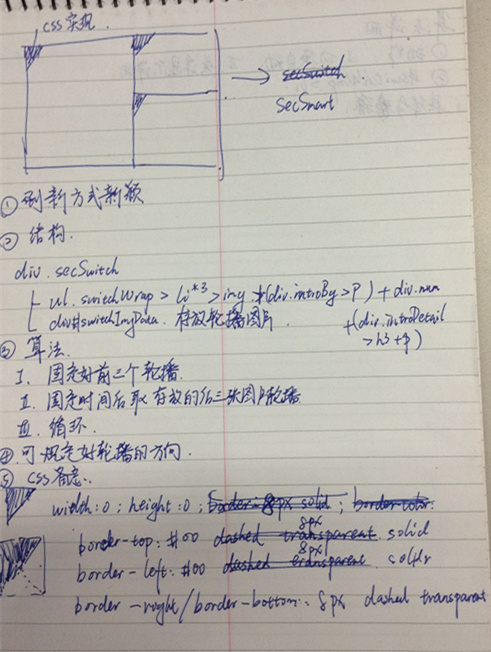 css实现.
→ secSwitch
secSmart
① 刷新方式新颖
② 结构.
div.secSwitch
ul.switchWrap > li*3 > img+(div.introBy>p) + div.num
+(div.introDetail
div#switchImgData. 存放轮播图片.
>h3+p)
③ 算法.
I. 固定好前三个轮播.
II. 固定时间后取存放的后三张图片轮播.
III. 循环.
④ 可规定好轮播的方向.
⑤ CSS备忘:.
width:0; height:0; border: 8px solid; border-color:
8px
border-top: #00 dashed transparent. solid
8px
border-left: #00 dashed transparent. solid
border-right/border-bottom: 8px dashed transparent